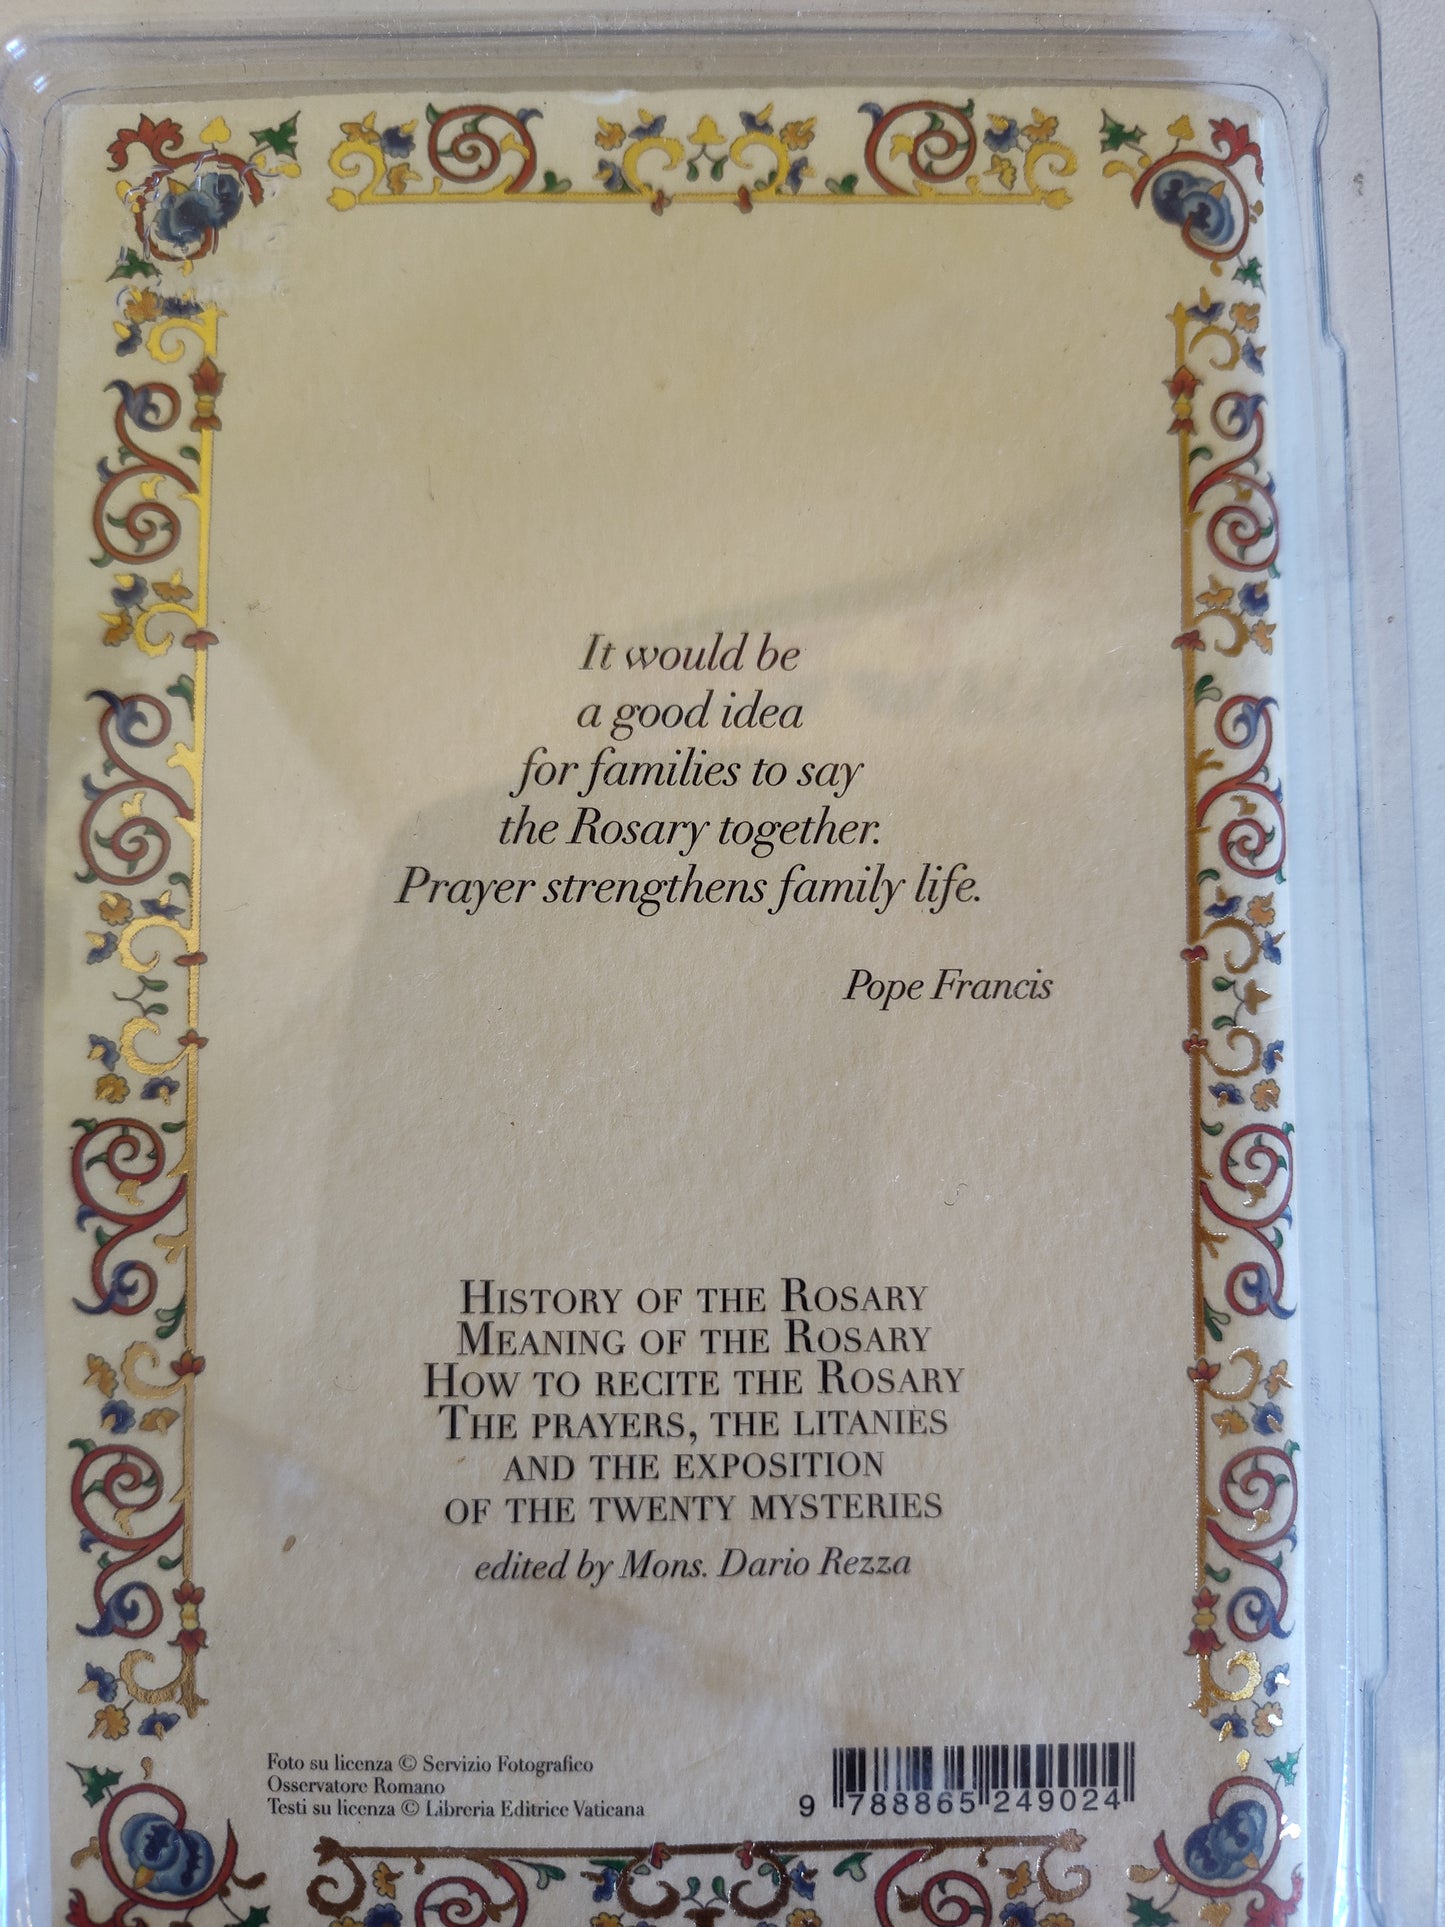 It would be
a good idea
for families to say
the Rosary together.
Prayer strengthens family life.
Pope Francis
HISTORY OF THE ROSARY
MEANING OF THE ROSARY
HOW TO RECITE THE ROSARY
THE PRAYERS, THE LITANIES
AND THE EXPOSITION
OF THE TWENTY MYSTERIES
edited by Mons. Dario Rezza
Foto su licenza © Servizio Fotografico
Osservatore Romano
Testi su licenza © Libreria Editrice Vaticana
9 788865 249024